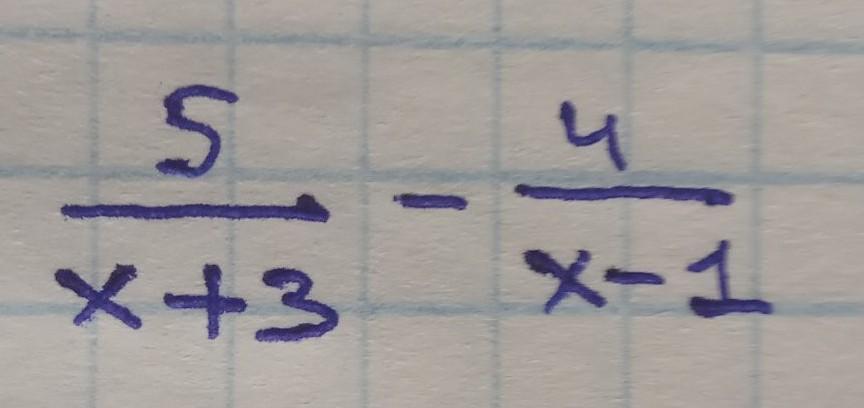 5/(x+3) - 4/(x-1)